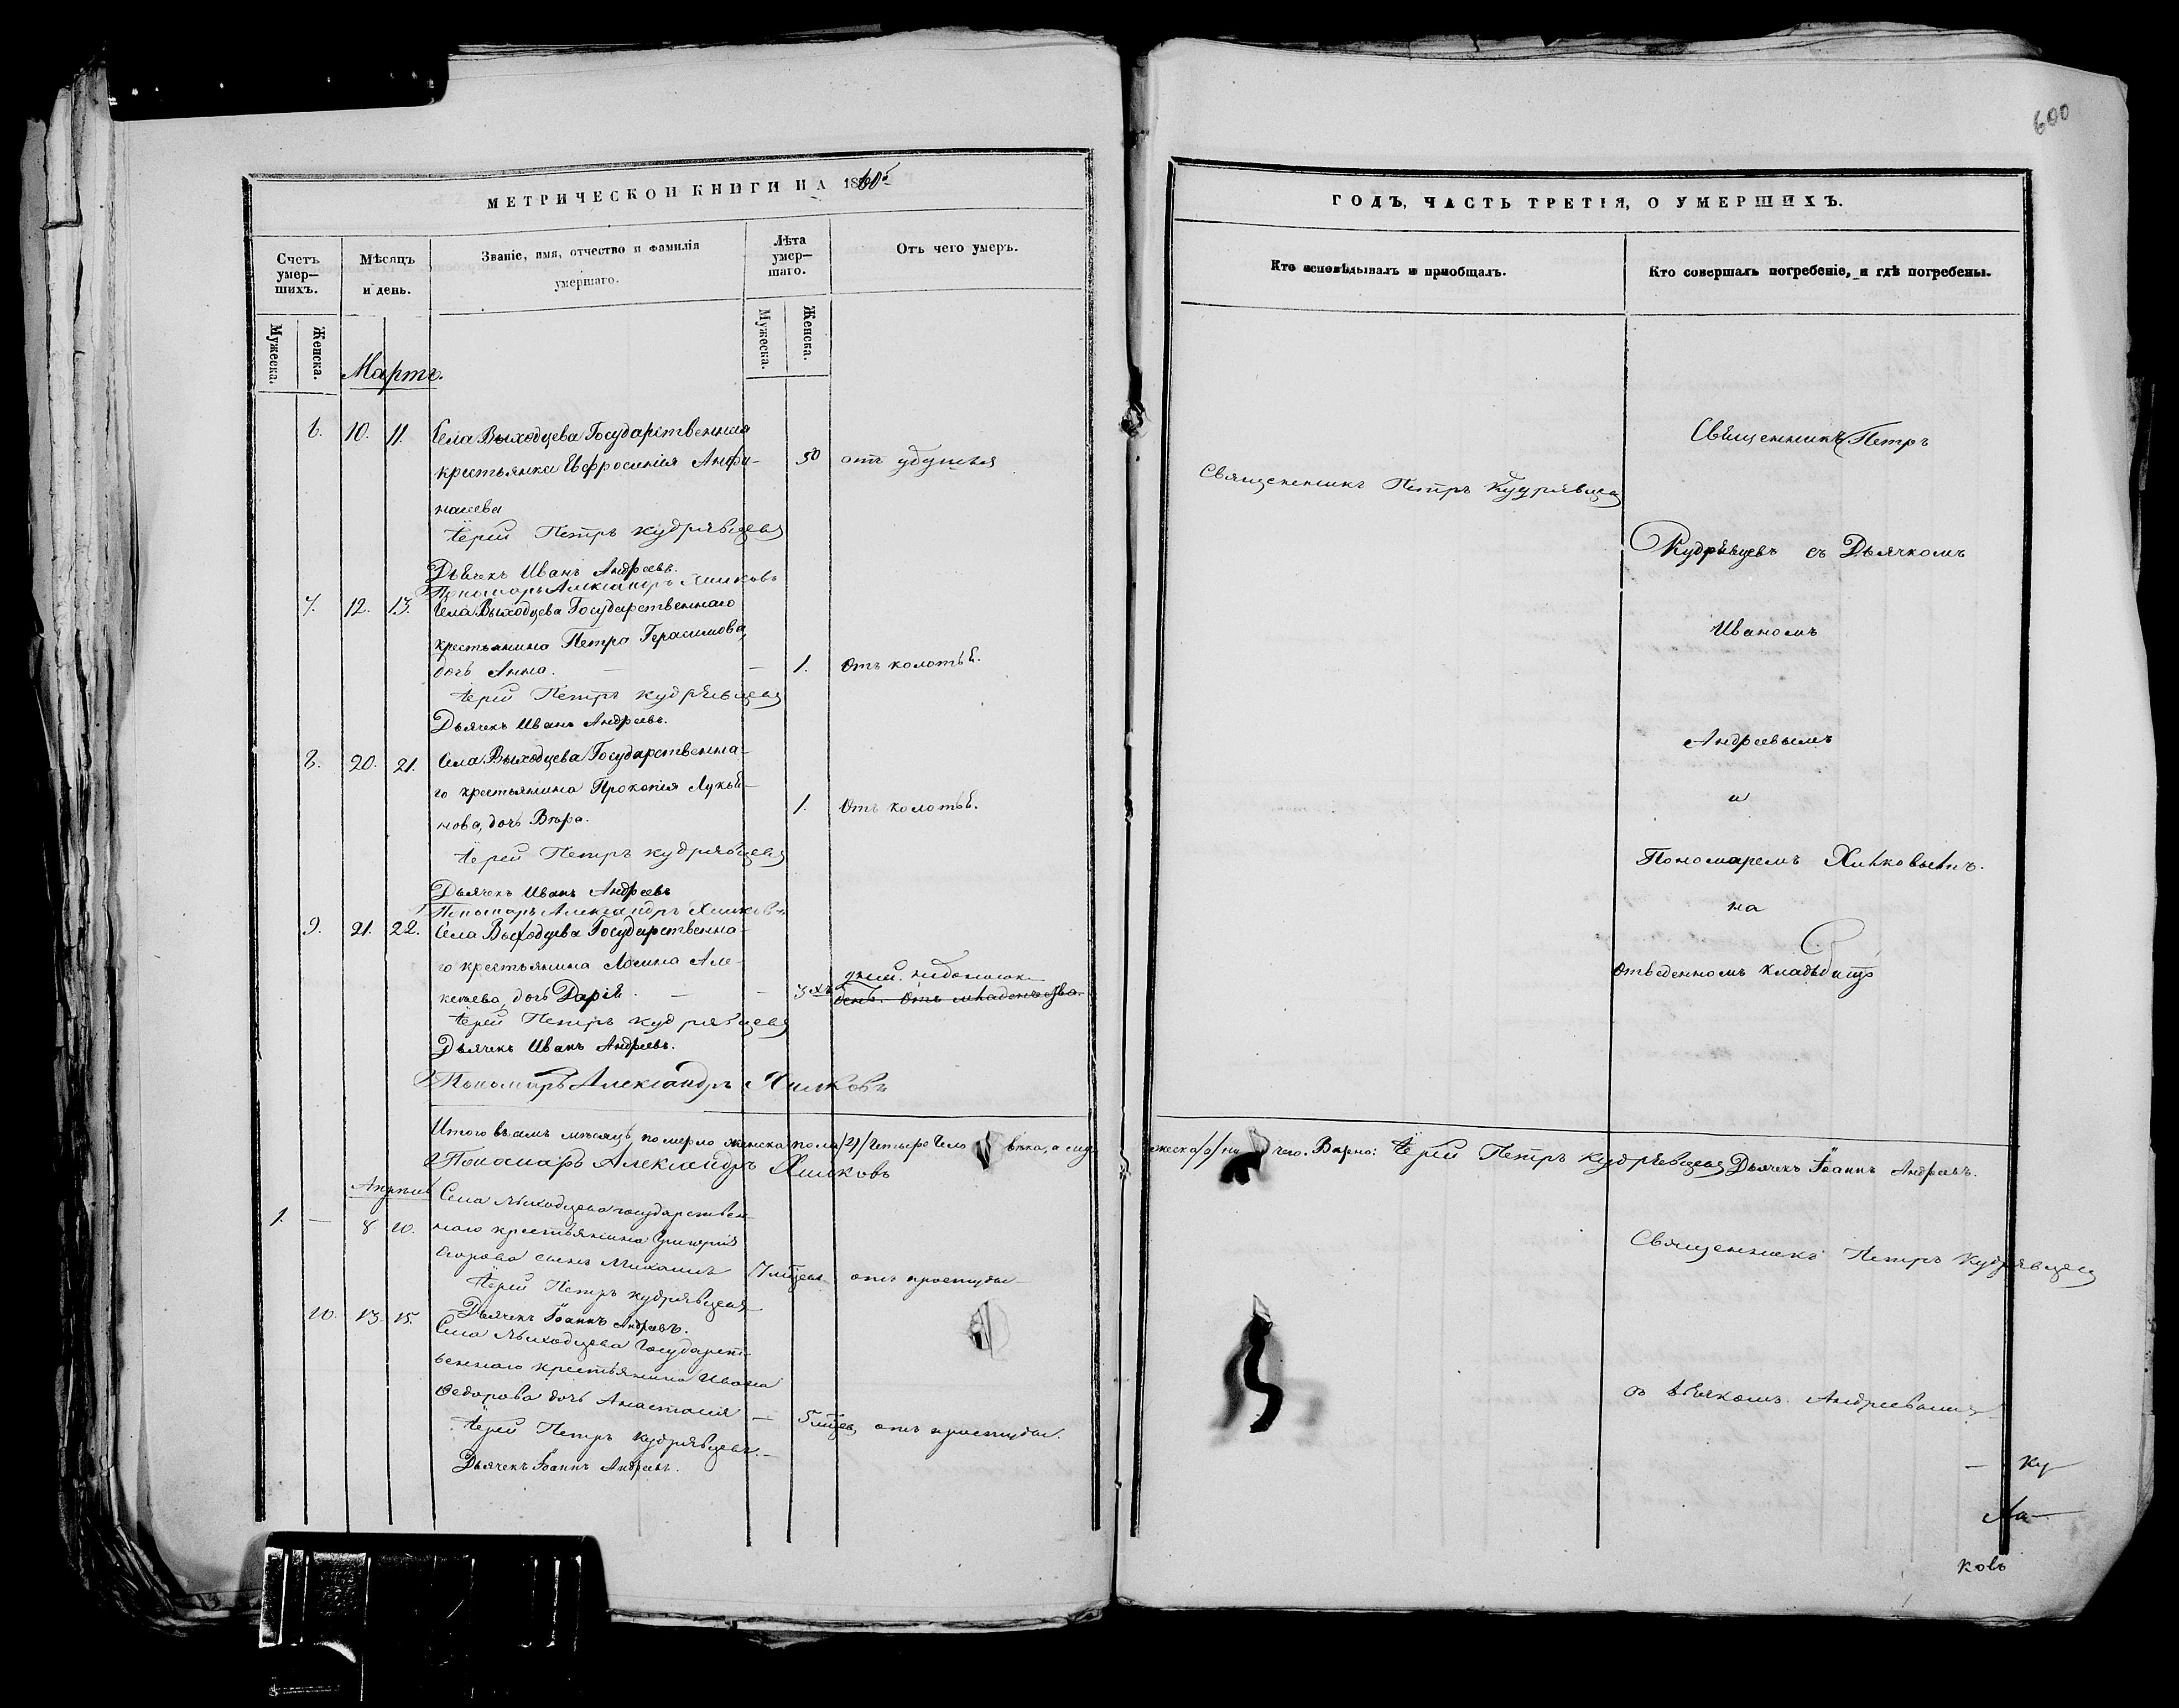 600
МЕТРИЧЕСКОЙ КНИГИ НА 1860й
Счетъ умер-шихъ.
Мѣсяцъ и день.
Званіе, имя, отчество и фамилія умершаго.
Лѣта умер-шаго.
Отъ чего умеръ.
Мужеска.
Женска.
Мужеска.
Женска.
Мартъ.
6. 10. 11. Села Выходцева Государственная
крестьянка Евфросинія
50 отъ удушья
Іерей Петръ Кудрявцевъ
Дьячекъ Иванъ Андреевъ.
Пономарь Александръ Хилковъ
7. 12. 13. Села Выходцева Государственнаго
крестьянина Петра Герасимова,
дочь Анна. — — 1. Отъ колотья.
Іерей Петръ Кудрявцевъ
Дьячекъ Иванъ Андреевъ.
8. 20. 21. Села Выходцева Государственна-
го крестьянина Прокопія Лукья-
нова, дочь Вѣра. 1. Отъ колотья.
Іерей Петръ Кудрявцевъ
Дьячекъ Иванъ Андреевъ
Пономарь Александръ Хилковъ
9. 21. 22. Села Выходцева Государственна-
го крестьянина Але-
ксѣева, дочь Дарія. — — 3хъ
дней.
день. Отъ младенчества.
Іерей Петръ Кудрявцевъ
Дьячекъ Иванъ Андреевъ.
Пономарь Александръ Хилковъ
Итого въ семъ мѣсяцѣ померло женска пола /4/ четыре чело вѣка, а
Пономарь Александръ Хилковъ
Апрѣль
Села Выходцева государствен-
1. — 8 10. наго крестьянина Григорія
Егорова сынъ Михаилъ 7 мѣсяц. отъ простуды
Іерей Петръ Кудрявцевъ
Дьячекъ Іоаннъ Андреевъ.
10. 13. 15. Села Выходцева Государст-
веннаго крестьянина Ивана
Федорова дочь Анастасія — 5 мѣсяц. отъ простуды.
Іерей Петръ Кудрявцевъ. —
Дьячекъ Іоаннъ Андреевъ.
ГОДЪ, ЧАСТЬ ТРЕТІЯ, О УМЕРШИХЪ.
Кто исповѣдывалъ и приобщалъ.
Кто совершалъ погребеніе, и гдѣ погребены.
Священникъ Петръ Кудрявцевъ
Священникъ Петръ
Кудрявцевъ съ Дьячкомъ
Иваномъ
Андреевымъ
и
Пономаремъ Хилковымъ.
на
отведенномъ кладбищѣ
Вѣрно: Іерей Петръ Кудрявцевъ Дьячекъ Іоаннъ Андреевъ.
Священникъ Петръ Кудрявцевъ
съ дьячкомъ Андреевымъ
— Ку
ковъ